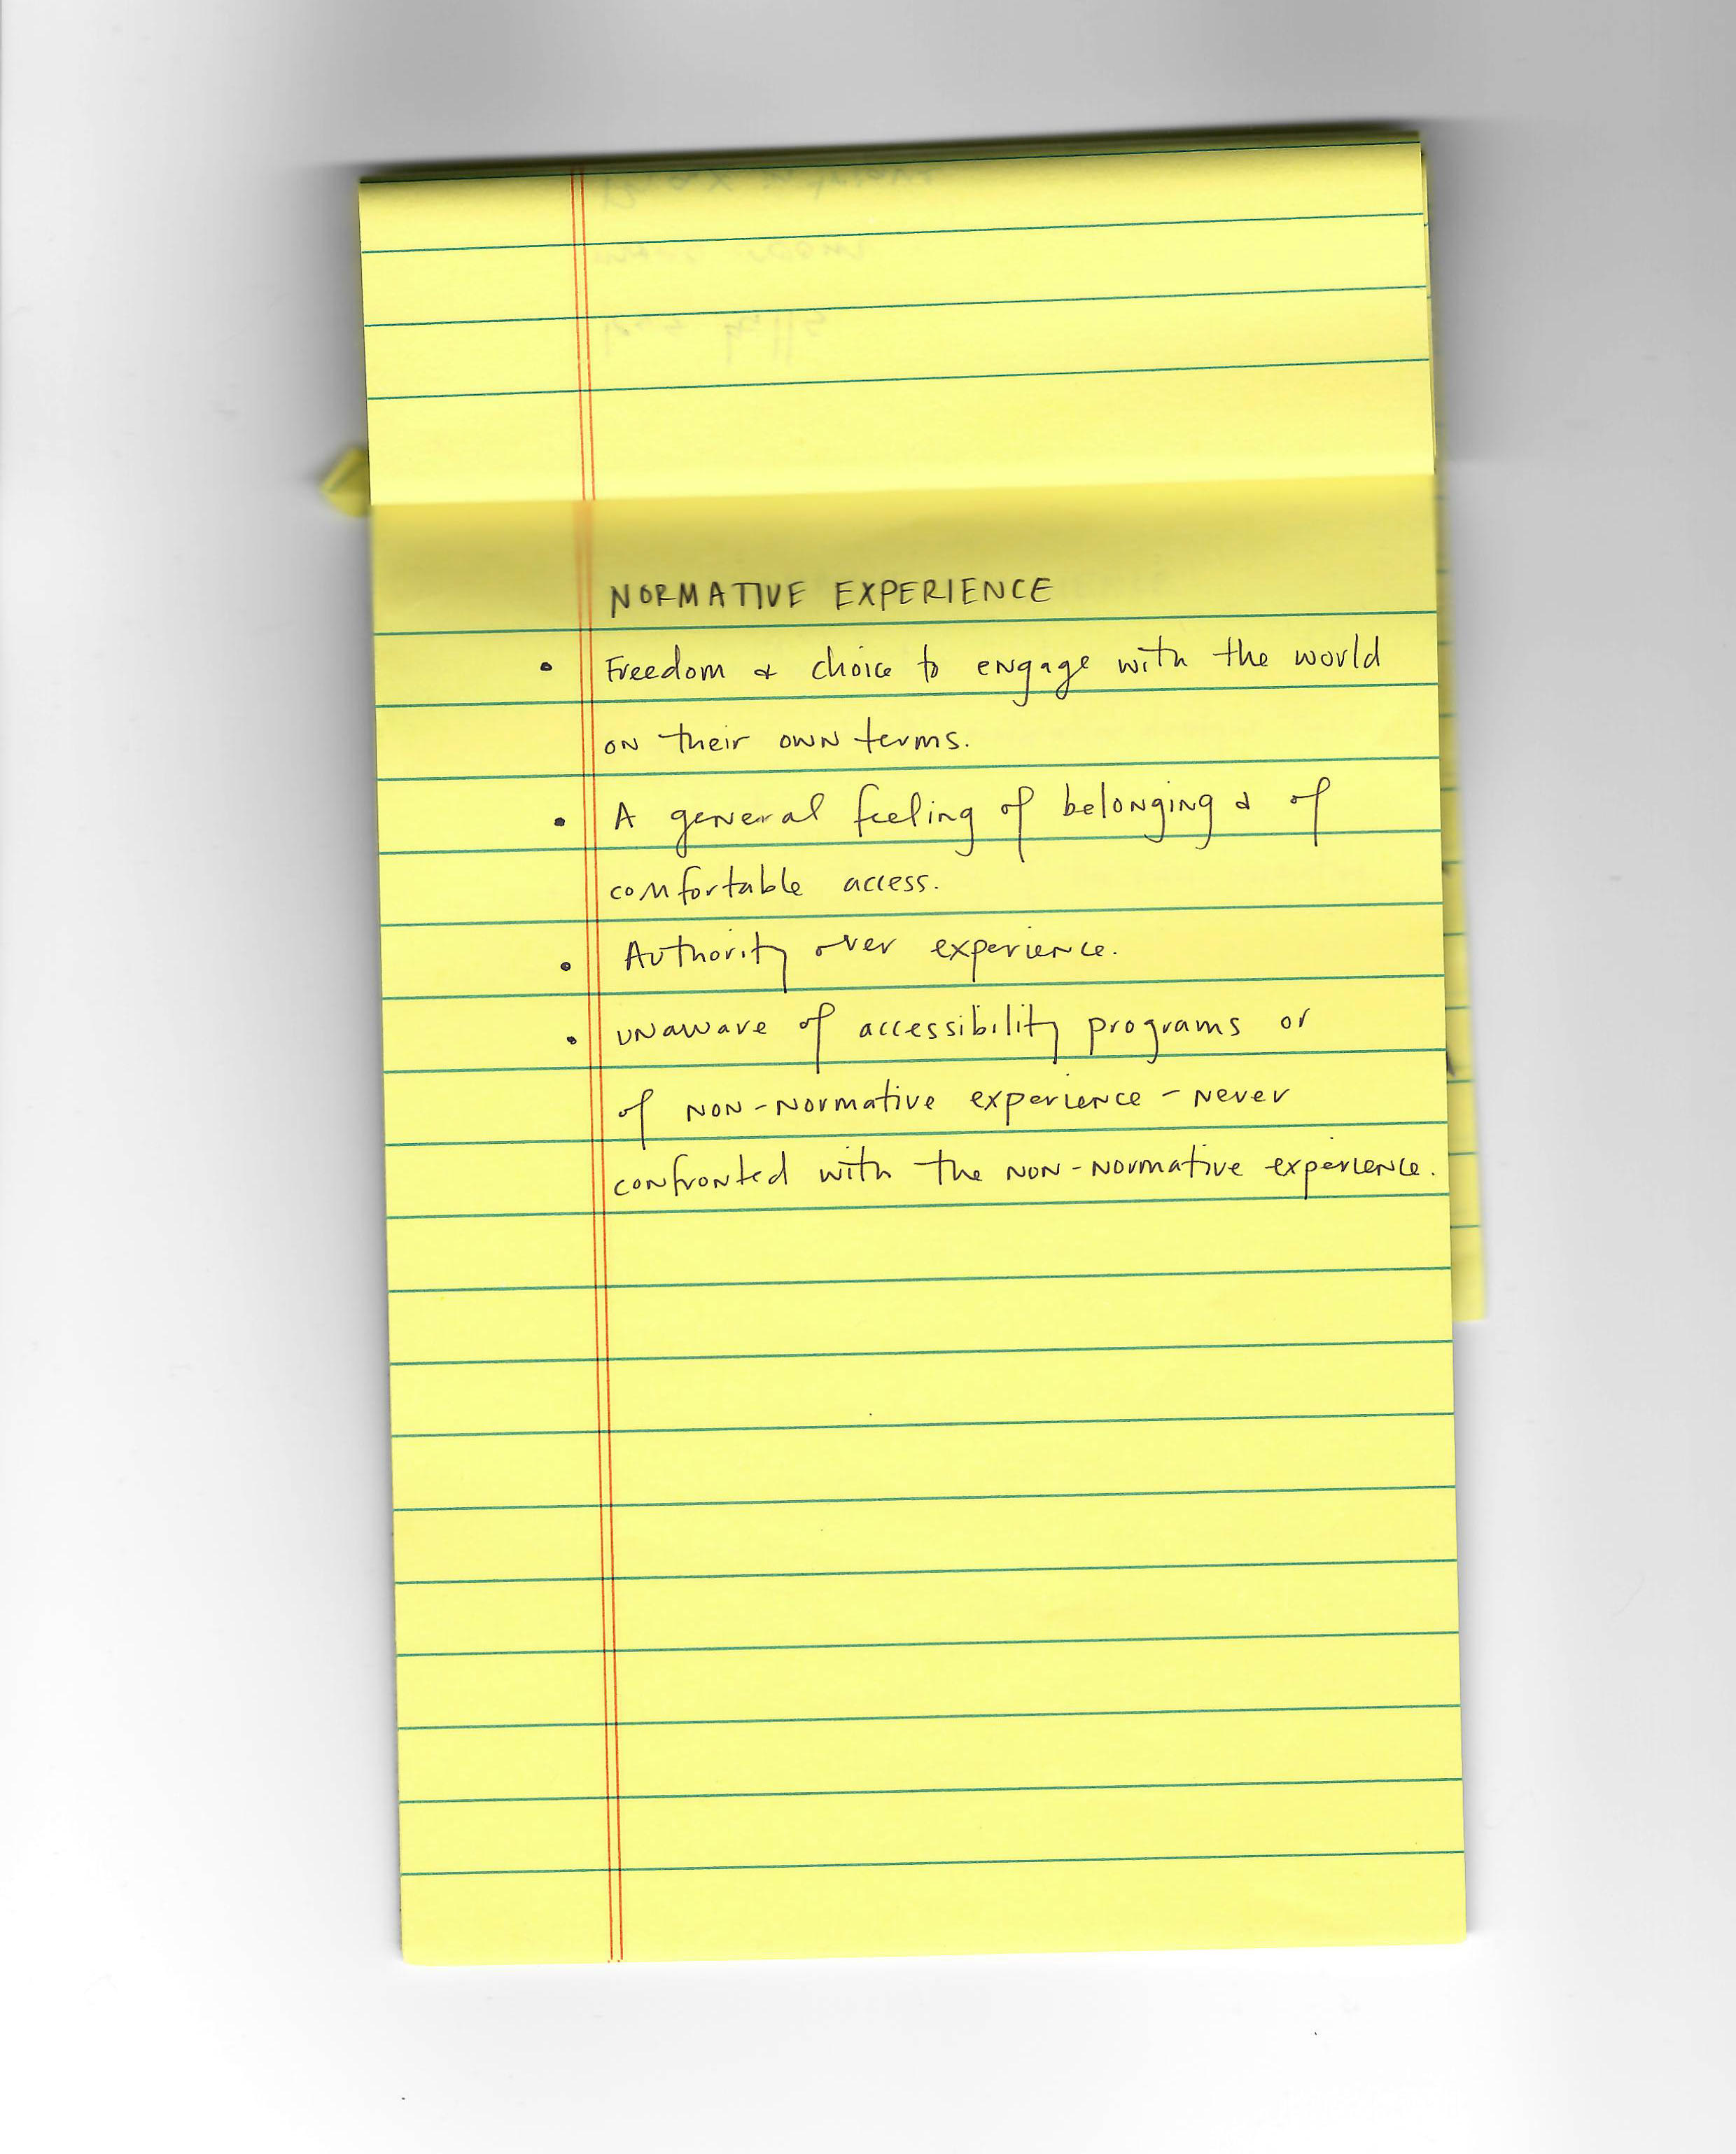 NORMATIVE EXPERIENCE
• Freedom & choice to engage with the world
on their own terms.
• A general feeling of belonging & of
comfortable access.
• Authority over experience.
• unaware of accessibility programs or
of non-normative experience - never
confronted with the non-normative experience.